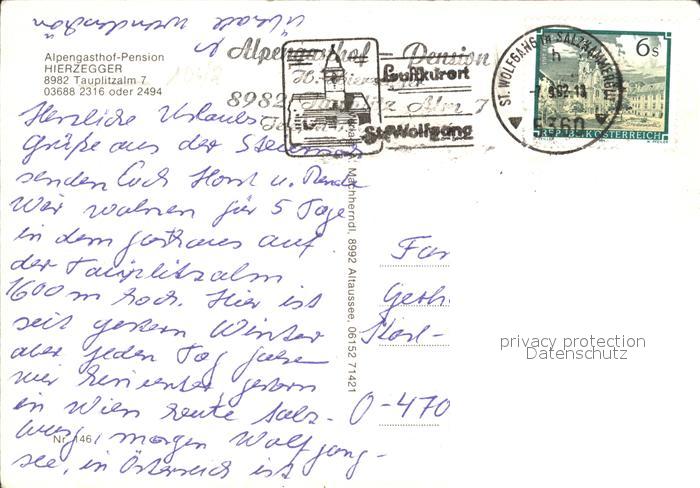 Alpengasthof-Pension
HIERZEGGER
8982 Tauplitzalm 7
03688 2316 oder 2494
Alpengasthof - Pension
8982 Tauplitz Alm 7
Luftkurort
St. Wolfgang
ST. WOLFGANG IM SALZKAMMERGUT
5360
6s
REPUBLIK ÖSTERREICH
Herzliche Urlaubs
Grüße aus der Steiermark
senden Euch Horst u. Renate
Wir wohnen für 5 Tage
in dem Gasthaus auf
der Tauplitzalm
1600 m hoch. Hier ist
seit gestern Winter
aber jeden Tag fahren
wir herunter, gestern
in Wien heute Salz-
burg, morgen Wolfgang-
see, in Österreich ist
Überall wunderschön
Nr. 146
Machherndl, 8992 Altaussee, 06152 71421
Fam
Gerh
Karl-
O-470
privacy protection
Datenschutz